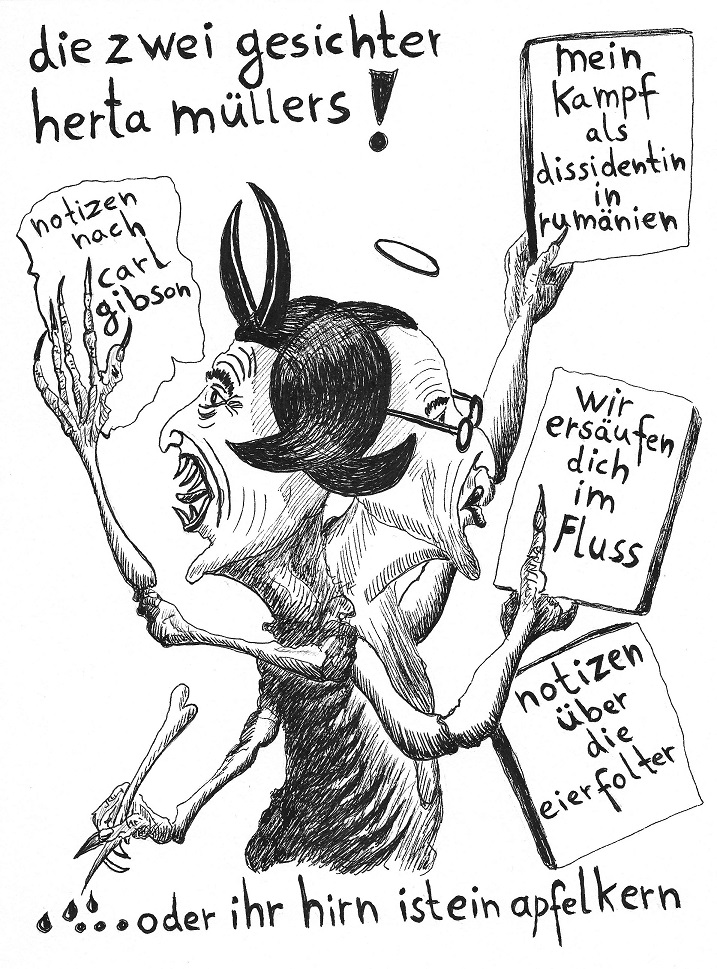 die zwei gesichter
herta müllers!
notizen
nach
carl
gibson
mein
kampf
als
dissidentin
in
rumänien
wir
ersäufen
dich
im
Fluss
notizen
über
die
eierfolter
.....oder ihr hirn ist ein apfelkern